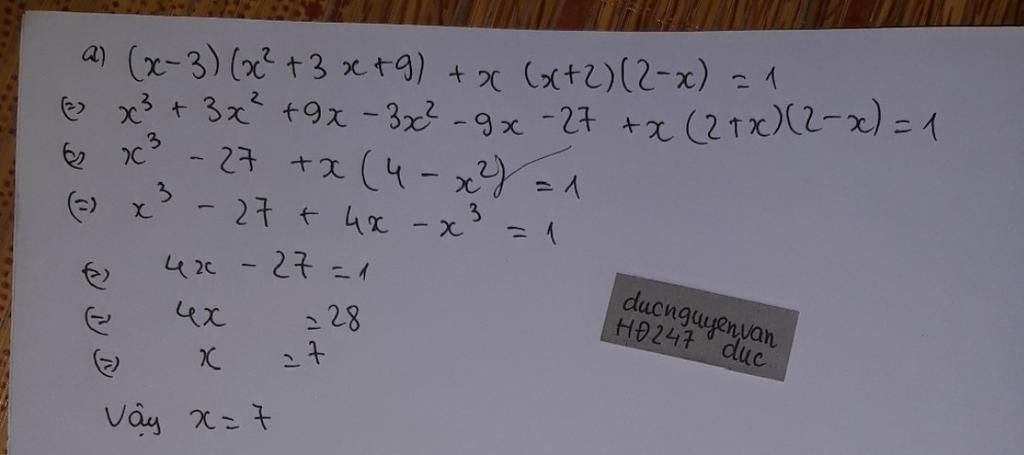 a) (x-3)(x² + 3x+9) + x (x+2)(2-x) = 1
(=) x³ + 3x² + 9x - 3x² - 9x - 27 + x (2+x)(2-x) = 1
(=) x³ - 27 + x (4 - x²) = 1
(=) x³ - 27 + 4x - x³ = 1
(=) 4x - 27 = 1
(=) 4x = 28
(=) x = 7
Vậy x = 7
ducnguyenvan
HĐ247 duc